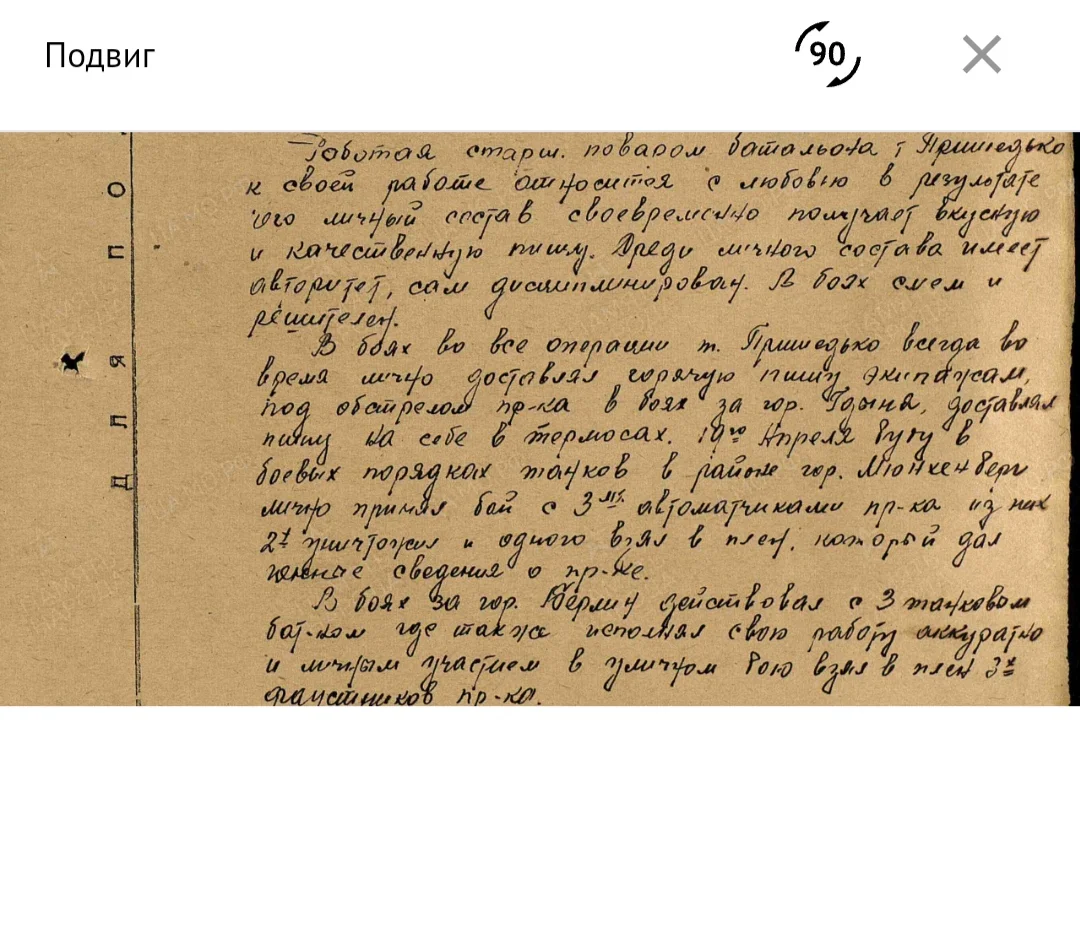 Подвиг
90
Работая старш. поваром батальона т Пришедько
к своей работе относится с любовью в результате
чего личный состав своевременно получает вкусную
и качественную пищу. Среди личного состава имеет
авторитет, сам дисциплинирован. В боях смел и
решителен.
В боях во все операции т. Пришедько всегда во
время лично доставлял горячую пищу экипажам,
под обстрелом пр-ка в боях за гор. Гдыня, доставлял
пищу на себе в термосах. 19го Апреля будучи в
боевых порядках танков в районе гор. Мюнхенберг
лично принял бой с 3мя автоматчиками пр-ка из них
2х уничтожил и одного взял в плен, который дал
ценные сведения о пр-ке.
В боях за гор. Берлин действовал с 3 танковым
бат-ном где также исполнял свою работу аккуратно
и личным участием в уличном бою взял в плен 3х
фаустников пр-ка.
Д Л Я П О